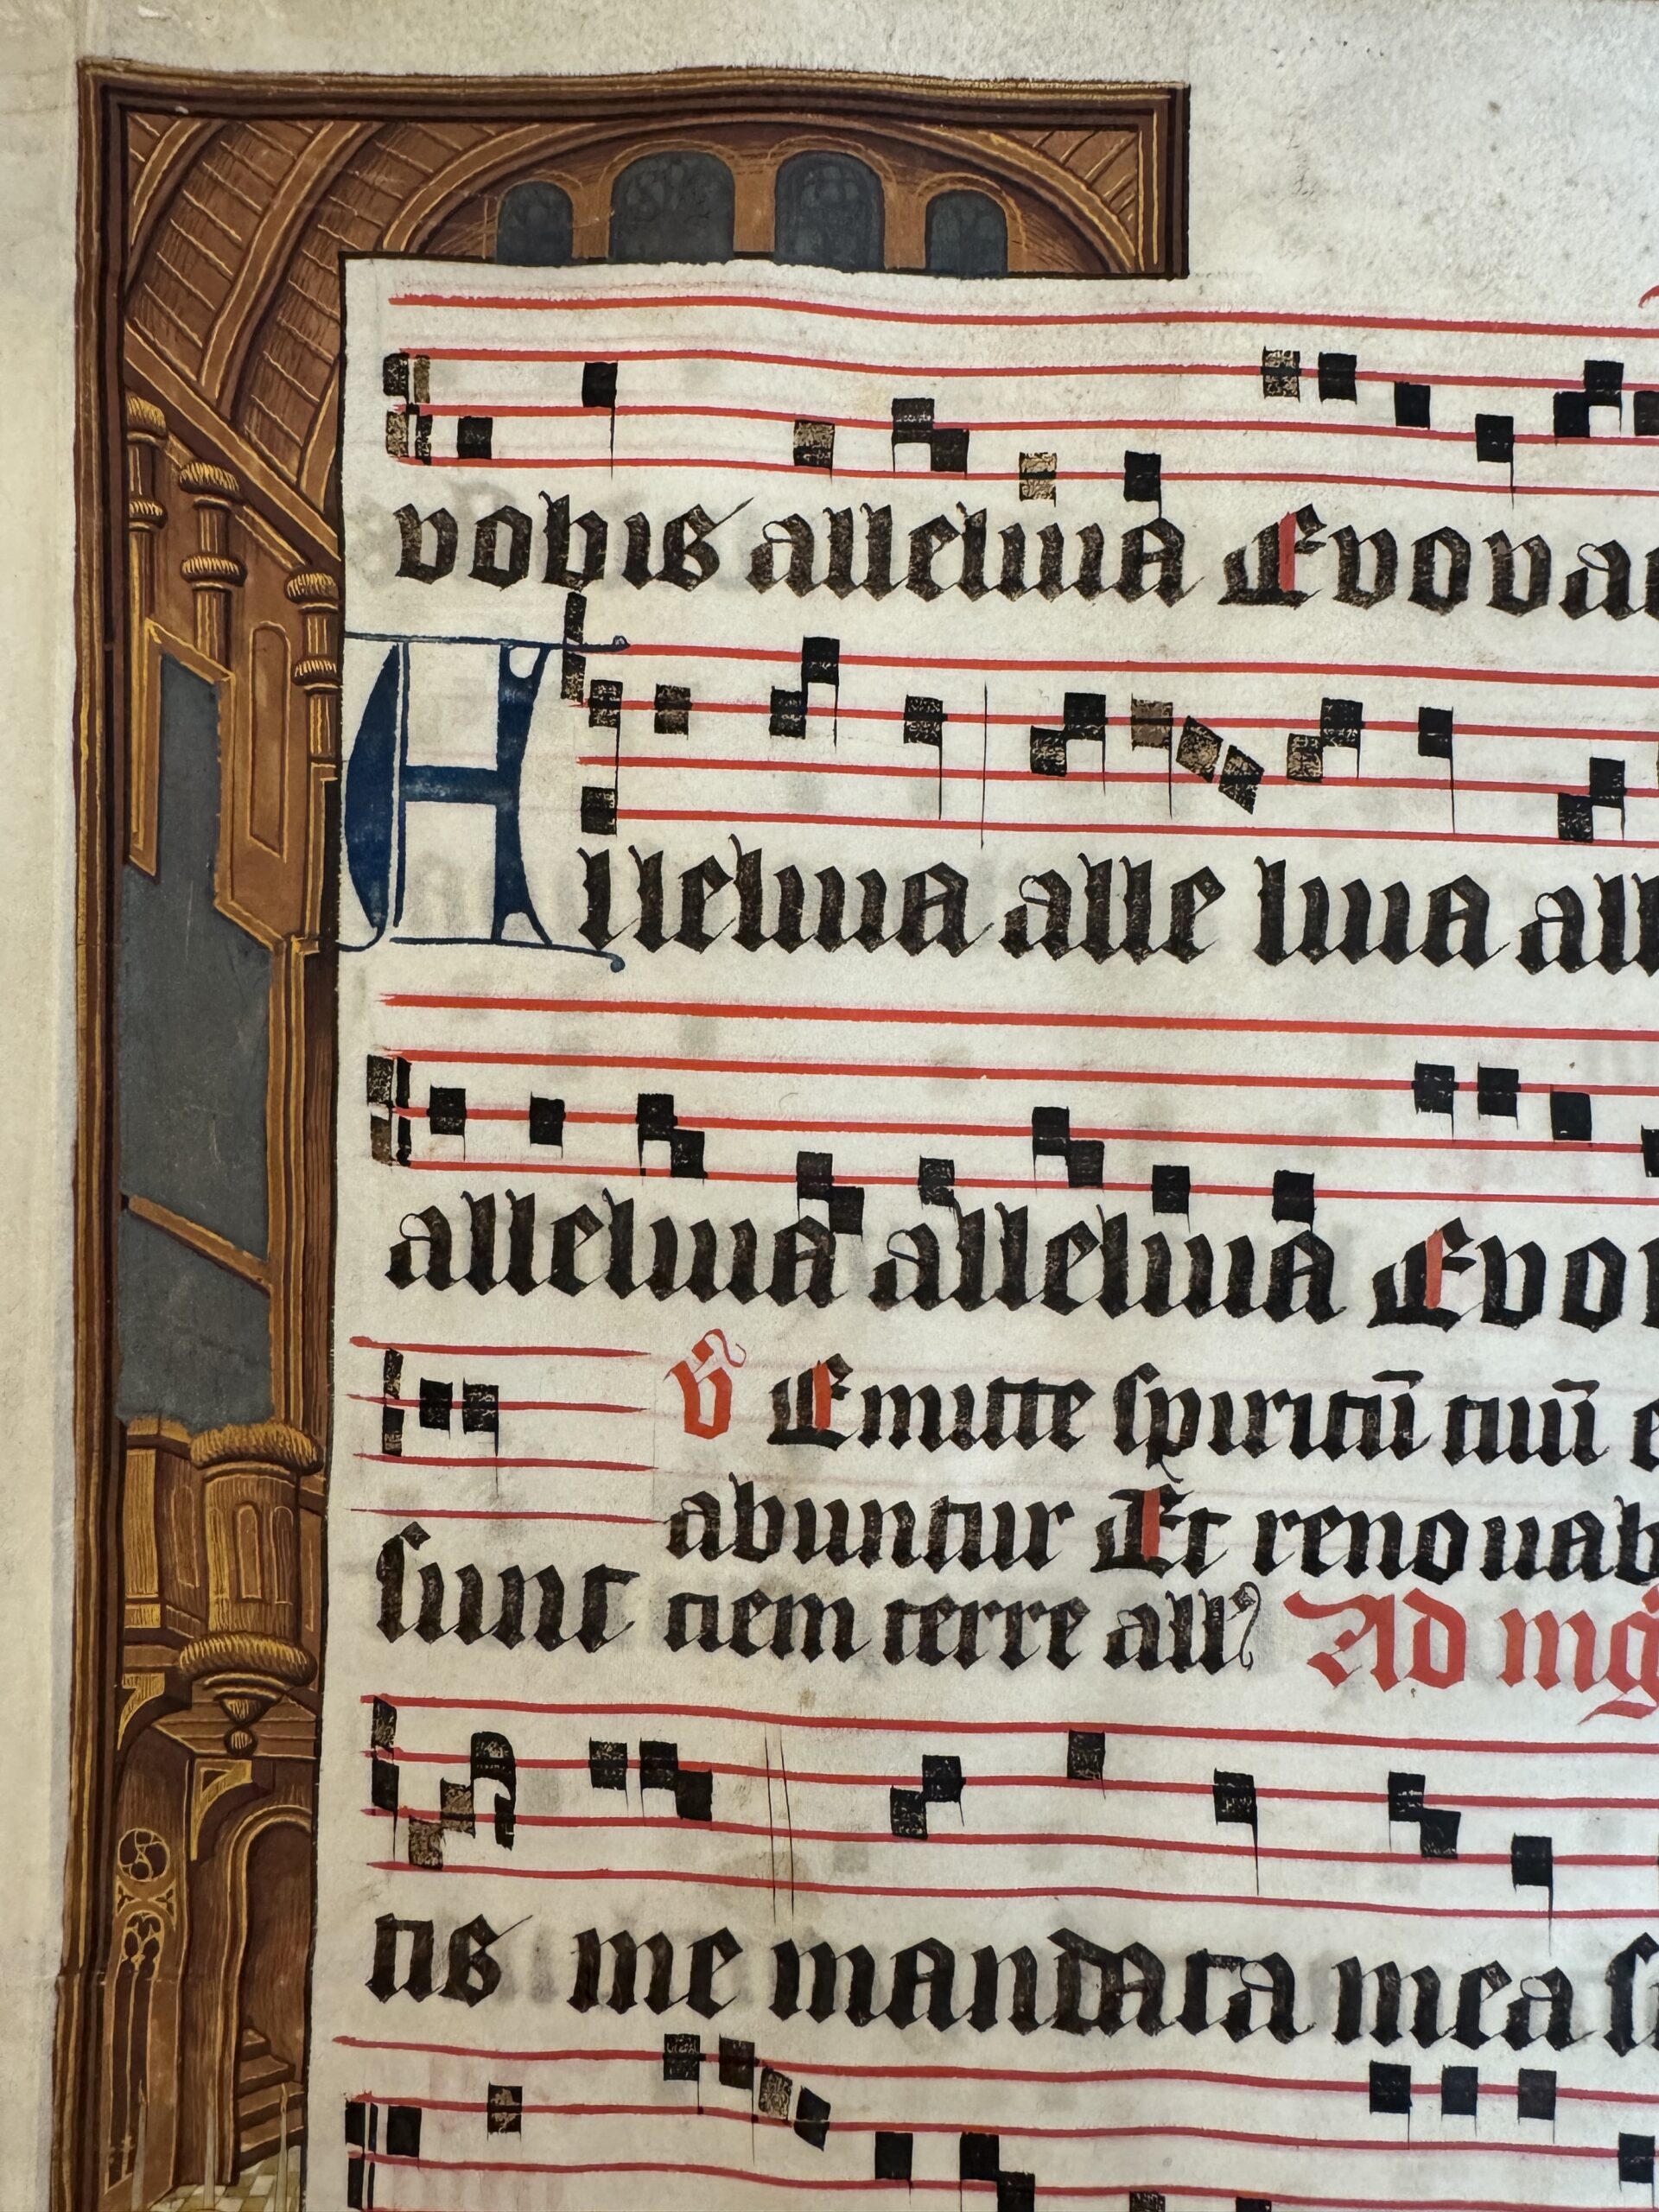 vobis alleluia Evovae
Alleluia alle luia all
alleluia alleluia Evov
℣ Emitte spiritū tuū e
abuntur Et renouab
sunt ciem terre all' Ad mg
tis me mandata mea s